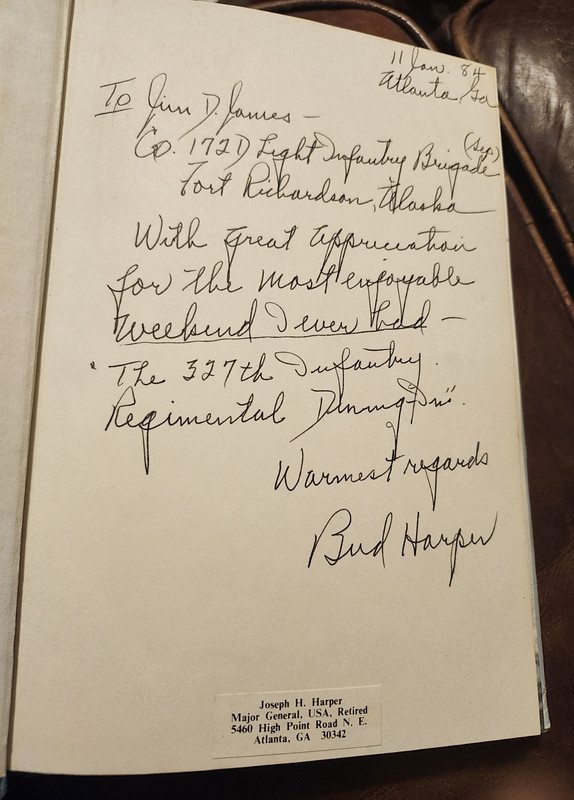 11 Jan. 84
Atlanta, Ga
To Jim D. James —
Co. 172D Light Infantry Brigade (Sep)
Fort Richardson, Alaska
With great appreciation
for the most enjoyable
weekend I ever had —
"The 327th Infantry
Regimental Dining-In".
Warmest regards
Bud Harper
Joseph H. Harper
Major General, USA, Retired
5460 High Point Road N. E.
Atlanta, GA 30342